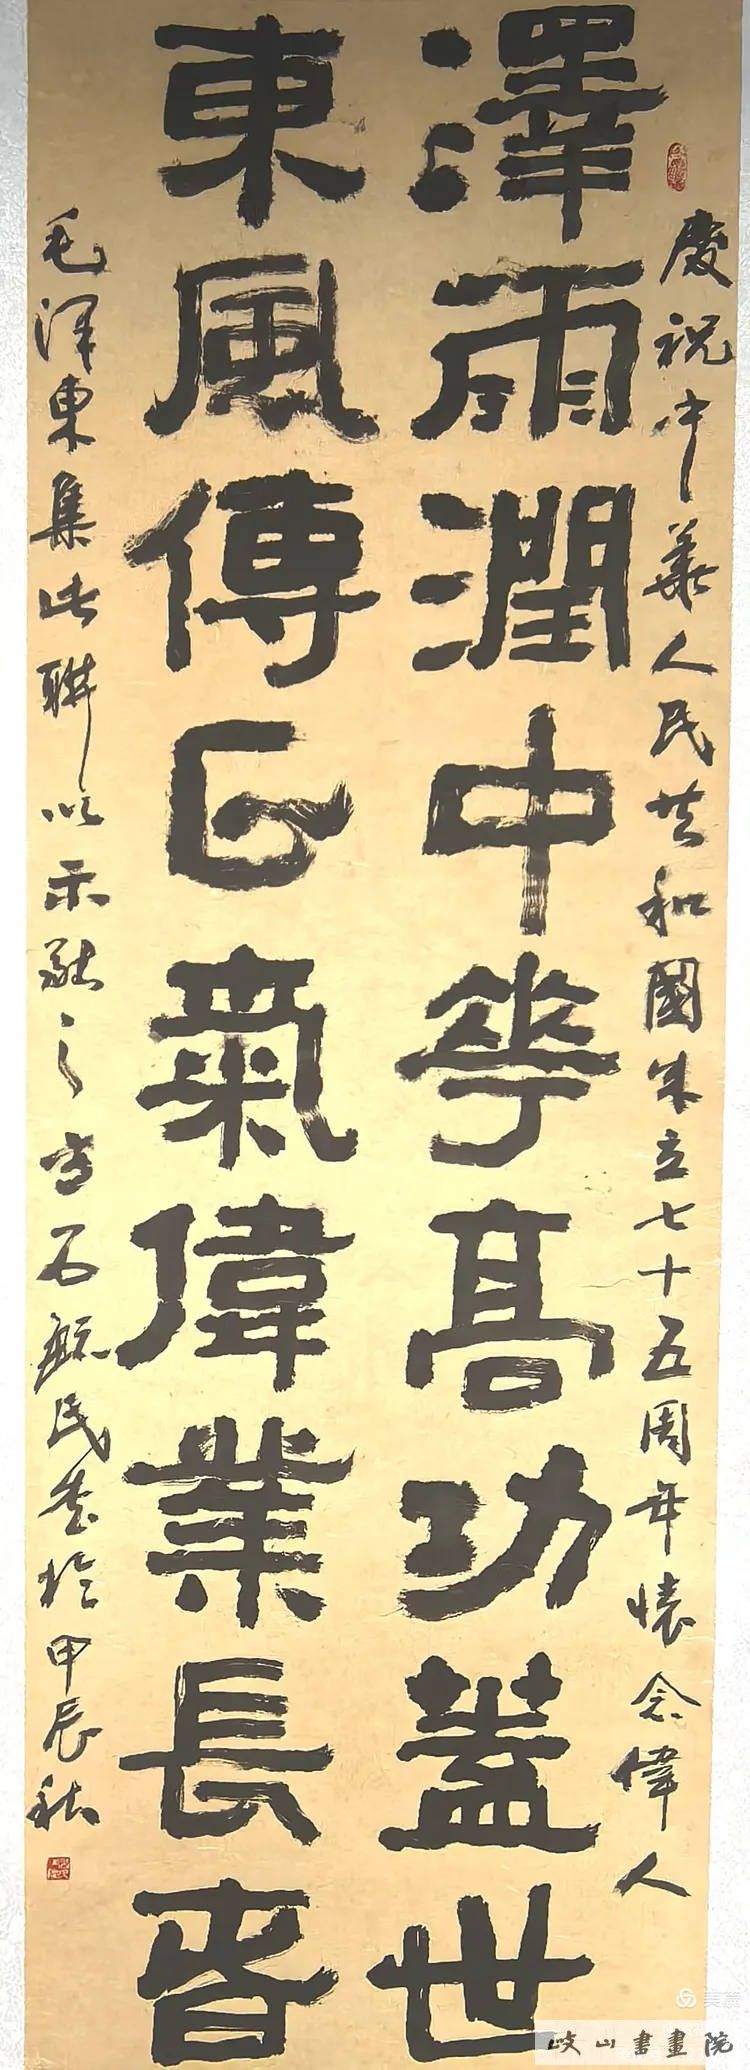 慶祝中華人民共和國成立七十五周年懷念偉人
澤雨潤中華高功蓋世
東風傳正氣偉業長旾
毛泽東集此聯以示
石毓民書於甲辰秋
美篇
岐山書畫院